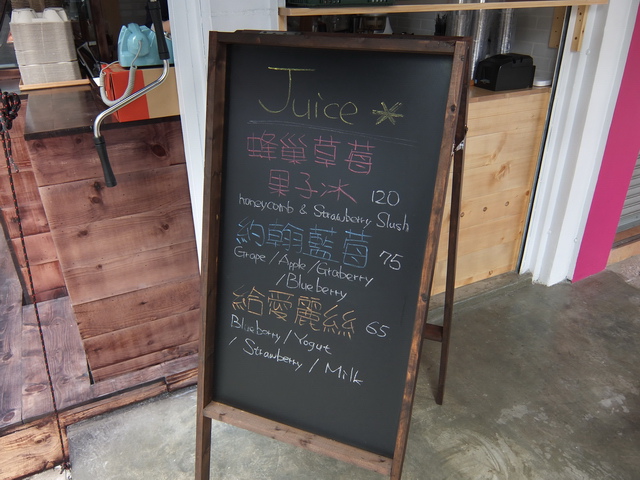 Juice
蜂巢草莓
果子冰 120
honeycomb & Strawberry Slush
約翰藍莓 75
Grape / Apple / Cranberry
/ Blueberry
給愛麗絲 65
Blueberry / Yogurt
/ Strawberry / Milk